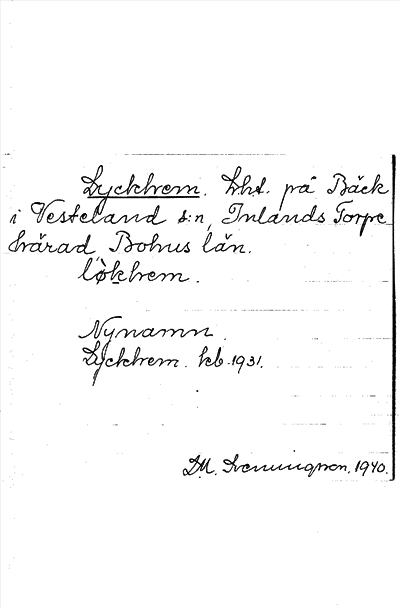 Lyckhem. Lht. på Bäck
i Vesterland s:n, Inlands Torpe
härad, Bohus län.
lø̀khem.
Nynamn.
Lyckhem. kb. 1931.
D.M. Svenningson. 1940.